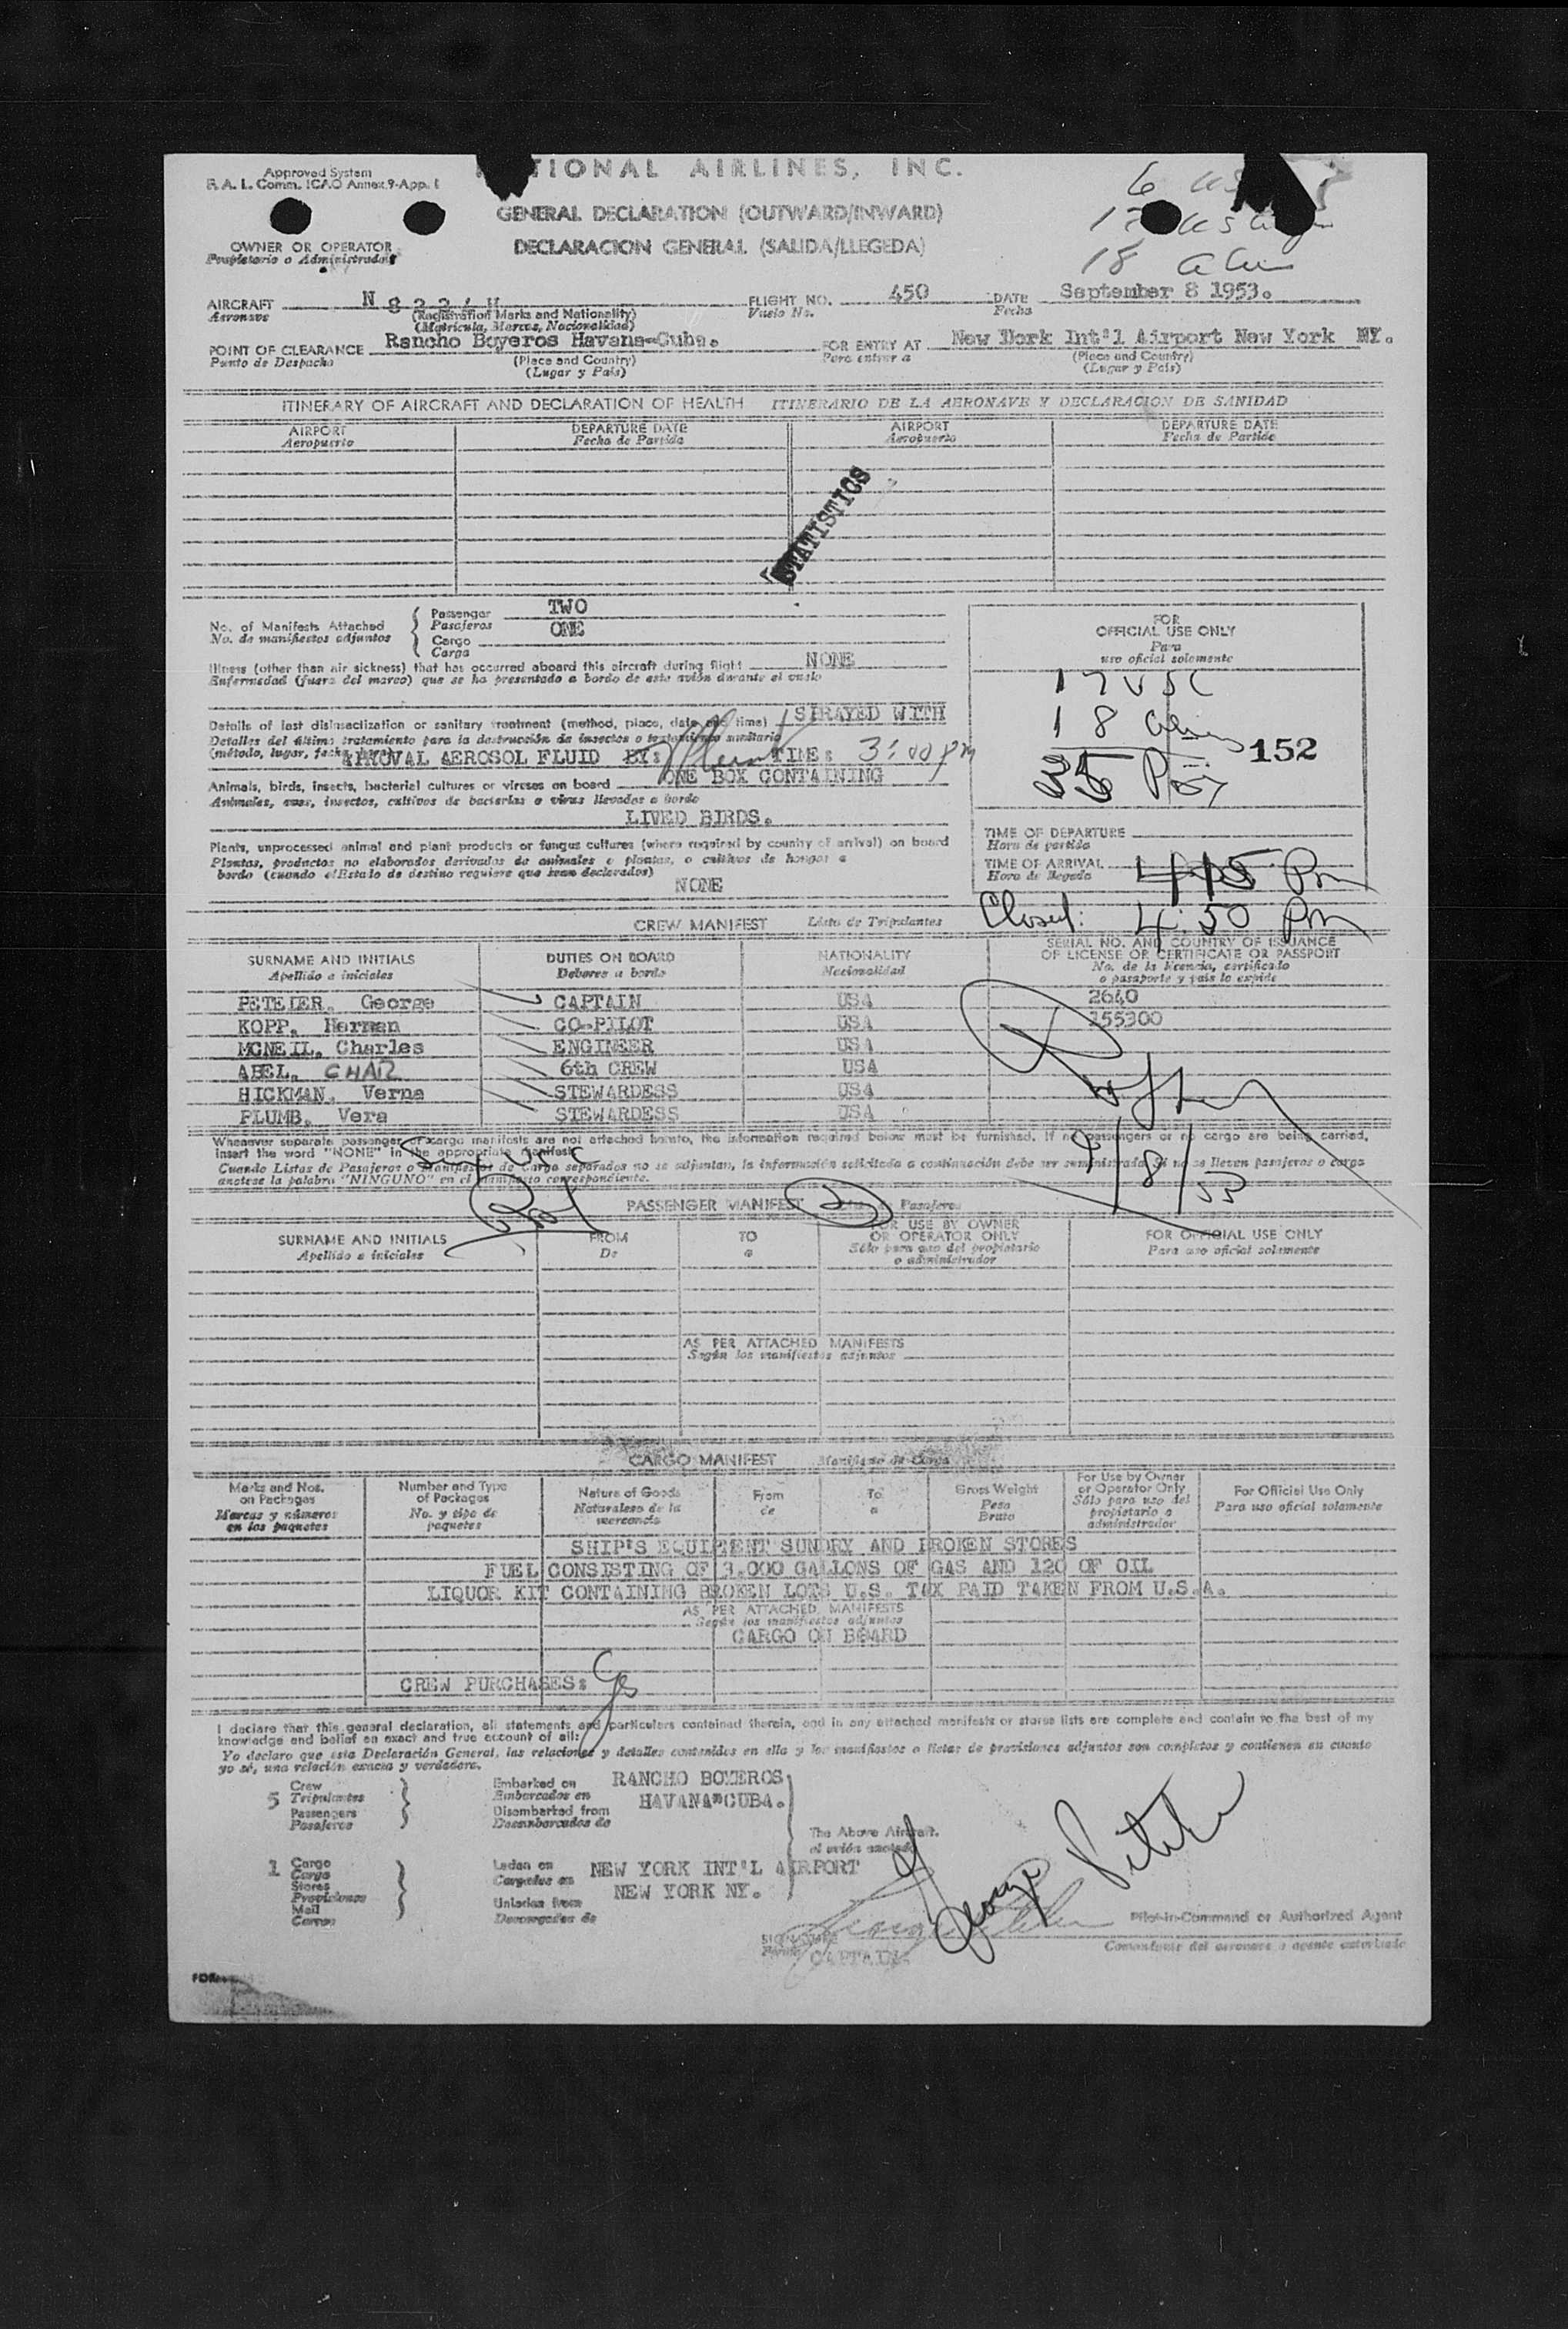 Approved System
F. A. L. Comm. ICAO Annex 9-App. 1
TIONAL AIRLINES, INC.
6
GENERAL DECLARATION (OUTWARD/INWARD)
DECLARACION GENERAL (SALIDA/LLEGEDA)
18
OWNER OR OPERATOR
AIRCRAFT N
Aeronave
(Registration Marks and Nationality)
(Matricula, Marcas, Nacionalidad)
FLIGHT NO. 450
DATE September 8 1953.
Fecha
POINT OF CLEARANCE Rancho Boyeros Havana-Cuba.
Punto de Despacho
(Place and Country)
(Lugar y País)
FOR ENTRY AT New Dork Int'l Airport New York NY.
Para entrar a
(Place and Country)
(Lugar y País)
ITINERARY OF AIRCRAFT AND DECLARATION OF HEALTH ITINERARIO DE LA AERONAVE Y DECLARACION DE SANIDAD
AIRPORT DEPARTURE DATE AIRPORT DEPARTURE DATE
Aeropuerto Fecha de Partida Aeropuerto Fecha de Partida
STATISTICS
No. of Manifests Attached
No. de manifiestos adjuntos
Passenger TWO
Pasajeros
Cargo ONE
Carga
Illness (other than air sickness) that has occurred aboard this aircraft during flight NONE
Enfermedad (fuera del mareo) que se ha presentado a bordo de este avión durante el vuelo
Details of last disinsectization or sanitary treatment (method, place, date and time) SPRAYED WITH
Detalles del último tratamiento para la destrucción de insectos o tratamiento sanitario
(método, lugar, fecha
AEROSOL FLUID BY: TIME: 3:00 PM
Animals, birds, insects, bacterial cultures or viruses on board ONE BOX CONTAINING
Animales, aves, insectos, cultivos de bacterias o virus llevados a bordo
LIVED BIRDS.
Plants, unprocessed animal and plant products or fungus cultures (where required by country of arrival) on board
Plantas, productos no elaborados derivados de animales o plantas, o cultivos de hongos a
bordo (cuando el Estado de destino requiere que sean declarados)
NONE
FOR
OFFICIAL USE ONLY
Para
uso oficial solamente
17 USC
18
152
35
TIME OF DEPARTURE
Hora de partida
TIME OF ARRIVAL 4:15 Pm
Hora de llegada
Closed: 4:50 Pm
CREW MANIFEST Lista de Tripulantes
SURNAME AND INITIALS DUTIES ON BOARD NATIONALITY SERIAL NO. AND COUNTRY OF ISSUANCE
OF LICENSE OR CERTIFICATE OR PASSPORT
Apellido e iniciales Deberes a bordo Nacionalidad No. de la licencia, certificado
o pasaporte y país lo expide
PETELER. George CAPTAIN USA 2640
KOPP. Herman CO-PILOT USA 155300
MCNEIL. Charles ENGINEER USA
ABEL. CHAR 6th CREW USA
HICKMAN. Verna STEWARDESS USA
PLUMB. Vera STEWARDESS USA
Whenever separate passenger or cargo manifests are not attached hereto, the information required below must be furnished. If no passengers or no cargo are being carried,
insert the word "NONE" in the appropriate manifest.
Cuando Listas de Pasajeros o Manifiestos de Carga separados no se adjuntan, la información solicitada a continuación debe ser suministrada. Si no se llevan pasajeros o carga
anotese la palabra "NINGUNO" en el manifiesto correspondiente.
9/8/53
PASSENGER MANIFEST Pasajeros
SURNAME AND INITIALS FROM TO FOR USE BY OWNER
OR OPERATOR ONLY FOR OFFICIAL USE ONLY
Apellido e iniciales De a Sólo para uso del propietario
o administrador Para uso oficial solamente
AS PER ATTACHED MANIFESTS
Según los manifiestos adjuntos
CARGO MANIFEST Manifiesto de Carga
Marks and Nos.
on Packages
Marcas y números
en los paquetes
Number and Type
of Packages
No. y tipo de
paquetes
Nature of Goods
Naturaleza de la
mercancía
From
de
To
a
Gross Weight
Peso
Bruto
For Use by Owner
or Operator Only
Sólo para uso del
propietario o
administrador
For Official Use Only
Para uso oficial solamente
SHIP'S EQUIPMENT SUNDRY AND BROKEN STORES
FUEL CONSISTING OF 3.000 GALLONS OF GAS AND 120 OF OIL
LIQUOR KIT CONTAINING BROKEN LOTS U.S. TAX PAID TAKEN FROM U.S.A.
AS PER ATTACHED MANIFESTS
Según los manifiestos adjuntos
CARGO ON BOARD
CREW PURCHASES: Yes
I declare that this general declaration, all statements and particulars contained therein, and in any attached manifests or stores lists are complete and contain to the best of my
knowledge and belief an exact and true account of all:
Yo declaro que esta Declaración General, las relaciones y detalles contenidos en ella y los manifiestos o listas de provisiones adjuntos son completos y contienen en cuanto
yo sé, una relación exacta y verdadera.
5 Crew
Tripulantes
Passengers
Pasajeros
Embarked on RANCHO BOYEROS
Embarcados en HAVANA-CUBA.
Disembarked from
Desembarcados de
The Above Aircraft.
el avión anotado
1 Cargo
Carga
Stores
Provisiones
Mail
Correo
Laden on NEW YORK INT'L AIRPORT
Cargados en
Unladen from NEW YORK NY.
Descargados de
George Peteler
Pilot-in-Command or Authorized Agent
Comandante del aeronave o agente autorizado
SIGNATURE
Firma CAPTAIN.